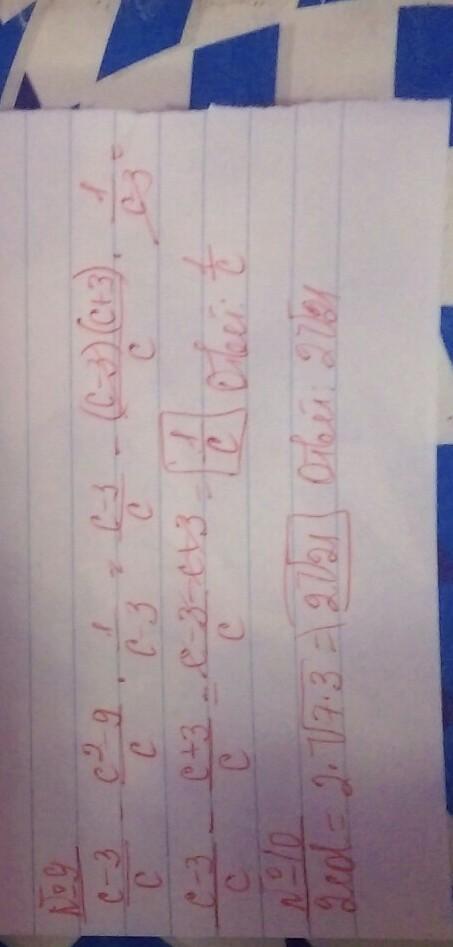 №9
(c-3)/c - (c²-9)/c · 1/(c-3) = (c-3)/c - ((c-3)(c+3))/c · 1/(c-3) =
(c-3)/c - (c+3)/c = (c-3-c+3)/c = 1/c Ответ: 1/c
№10
2cd = 2·√7·3 = 2√21 Ответ: 2√21